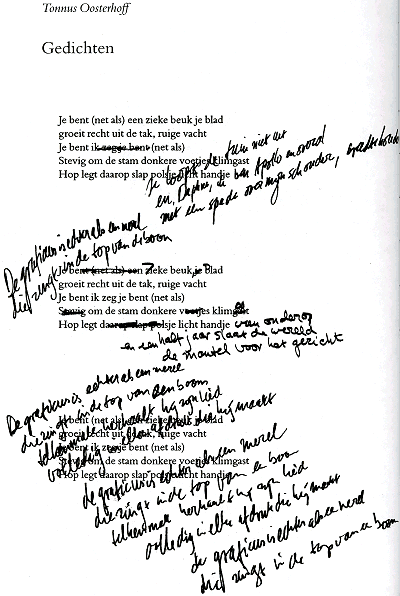 Tonnus Oosterhoff
Gedichten
Je bent (net als) een zieke beuk je blad
groeit recht uit de tak, ruige vacht
Je bent ik zegje bent (net als)
Stevig om de stam donkere voetjes klimgast
Hop legt daarop slap polsje licht handje
Je loopt de tuin niet uit
en, Daphne, de
met een spade over mijn schouder,
De graficus is echter als een merel
die zingt in de top van de boom
Je bent (net als) een zieke beuk je blad
groeit recht uit de tak, ruige vacht
Je bent ik zeg je bent (net als)
Stevig om de stam donkere voetjes klimgast
Hop legt daarop slap polsje licht handje van onderop
en een half jaar slaat de wereld
de mantel voor het gezicht
De graficus is echter als een merel
die zingt in de top van een boom
telkenmale herhaalt hij zijn lied
volledig in elke afdruk die hij maakt
Je bent (net als) een zieke beuk je blad
groeit recht uit de tak, ruige vacht
Je bent ik zegje bent (net als)
Stevig om de stam donkere voetjes klimgast
Hop legt daarop slap polsje licht handje
de graficus is echter als een merel
die zingt in de top van een boom
telkenmale herhaalt hij zijn lied
volledig in elke afdruk die hij maakt
de graficus is echter als een merel
die zingt in de top van een boom